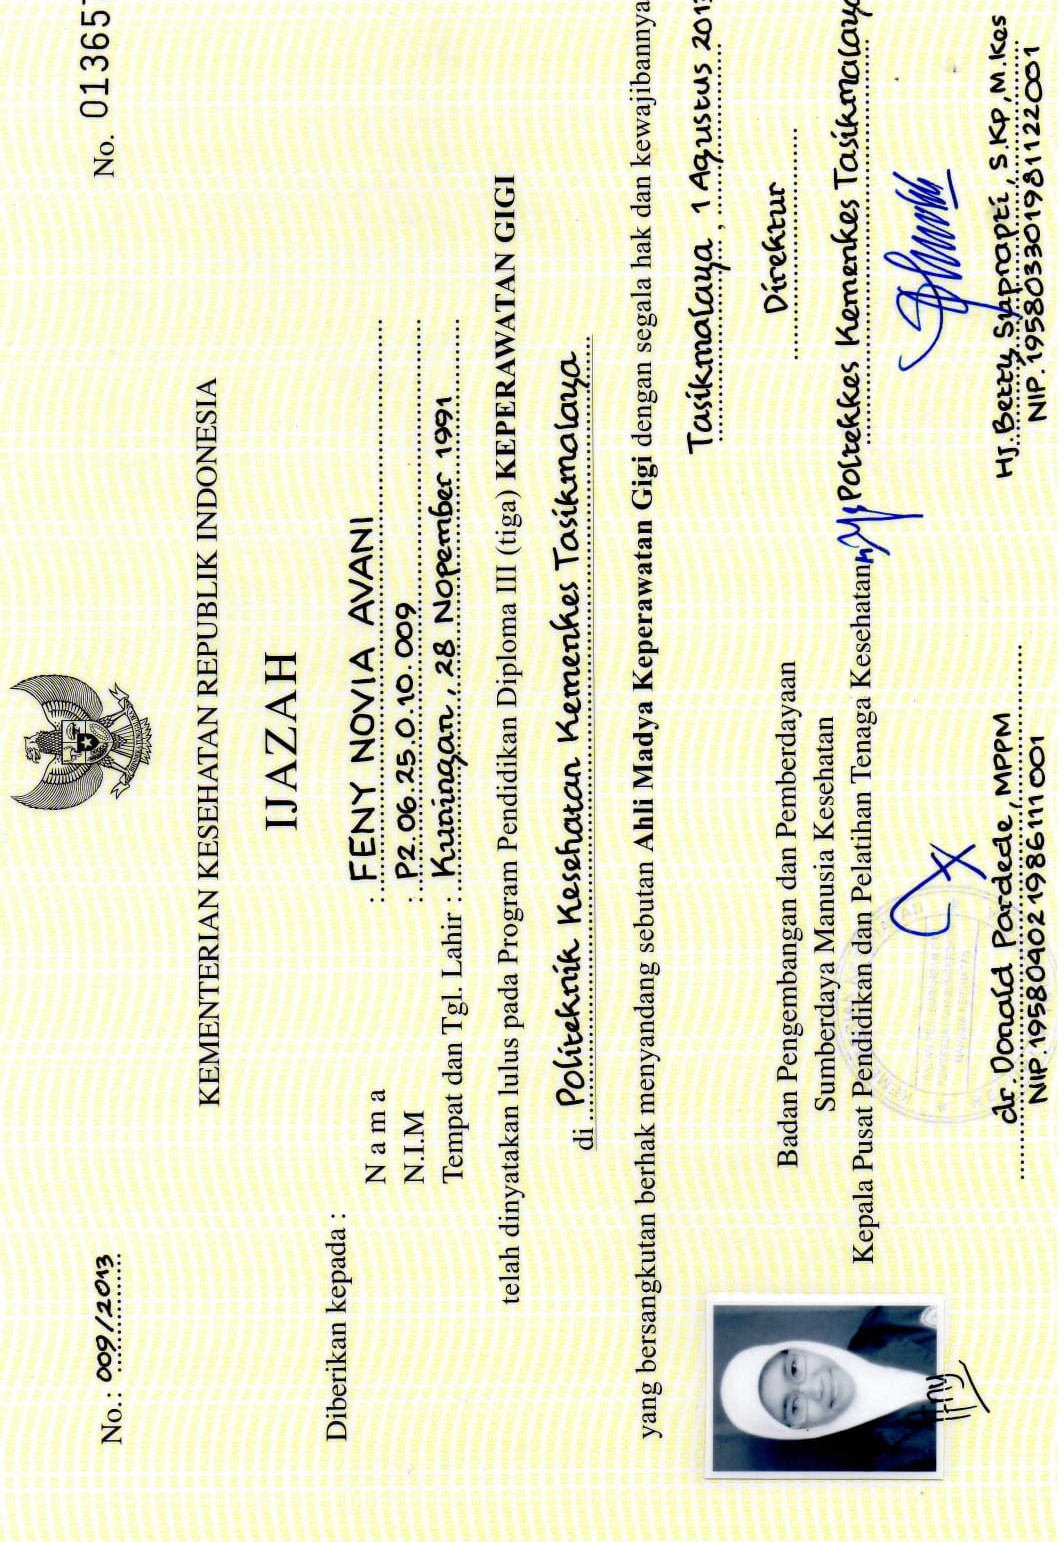 No.: 009/2013
No. 01365
KEMENTERIAN KESEHATAN REPUBLIK INDONESIA
IJAZAH
Diberikan kepada :
N a m a : FENY NOVIA AVANI
N.I.M : P2.06.25.0.10.009
Tempat dan Tgl. Lahir : Kuningan, 28 Nopember 1991
telah dinyatakan lulus pada Program Pendidikan Diploma III (tiga) KEPERAWATAN GIGI
di Politeknik Kesehatan Kemenkes Tasikmalaya
yang bersangkutan berhak menyandang sebutan Ahli Madya Keperawatan Gigi dengan segala hak dan kewajibannya
Tasikmalaya, 1 Agustus 2013
Badan Pengembangan dan Pemberdayaan
Sumberdaya Manusia Kesehatan
Kepala Pusat Pendidikan dan Pelatihan Tenaga Kesehatan
dr. Donald Pardede, MPPM
NIP. 195804021986111001
Direktur
Poltekkes Kemenkes Tasikmalaya
Hj. Betty Suprapti, S.Kp, M.Kes
NIP. 195803301981122001